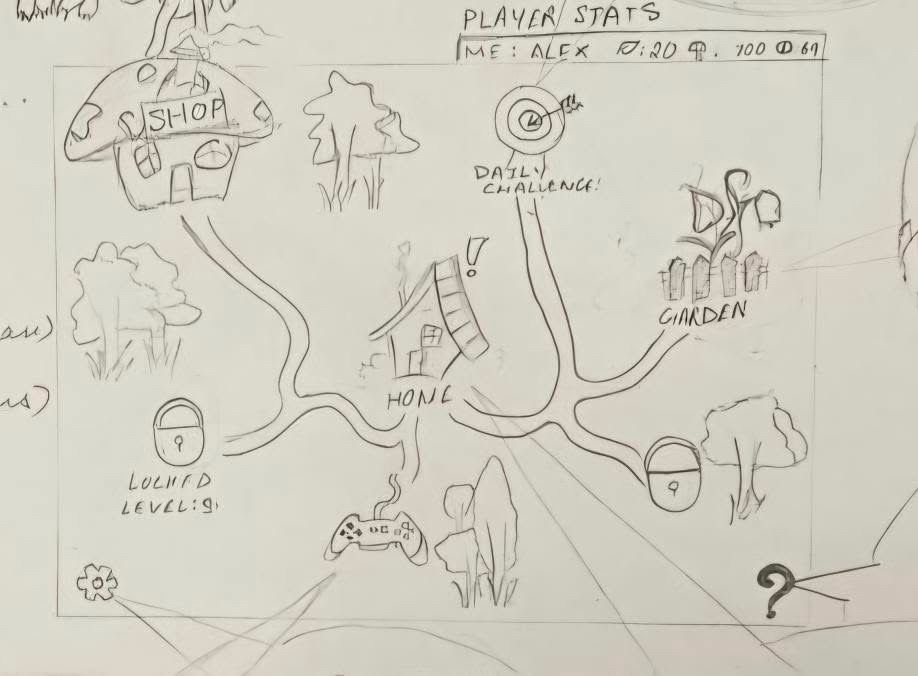 PLAYER STATS
ME: ALEX :20 . 100 69
SHOP
DAILY
CHALLENGE!
GARDEN
!
HOME
LOCKED
LEVEL:9
?